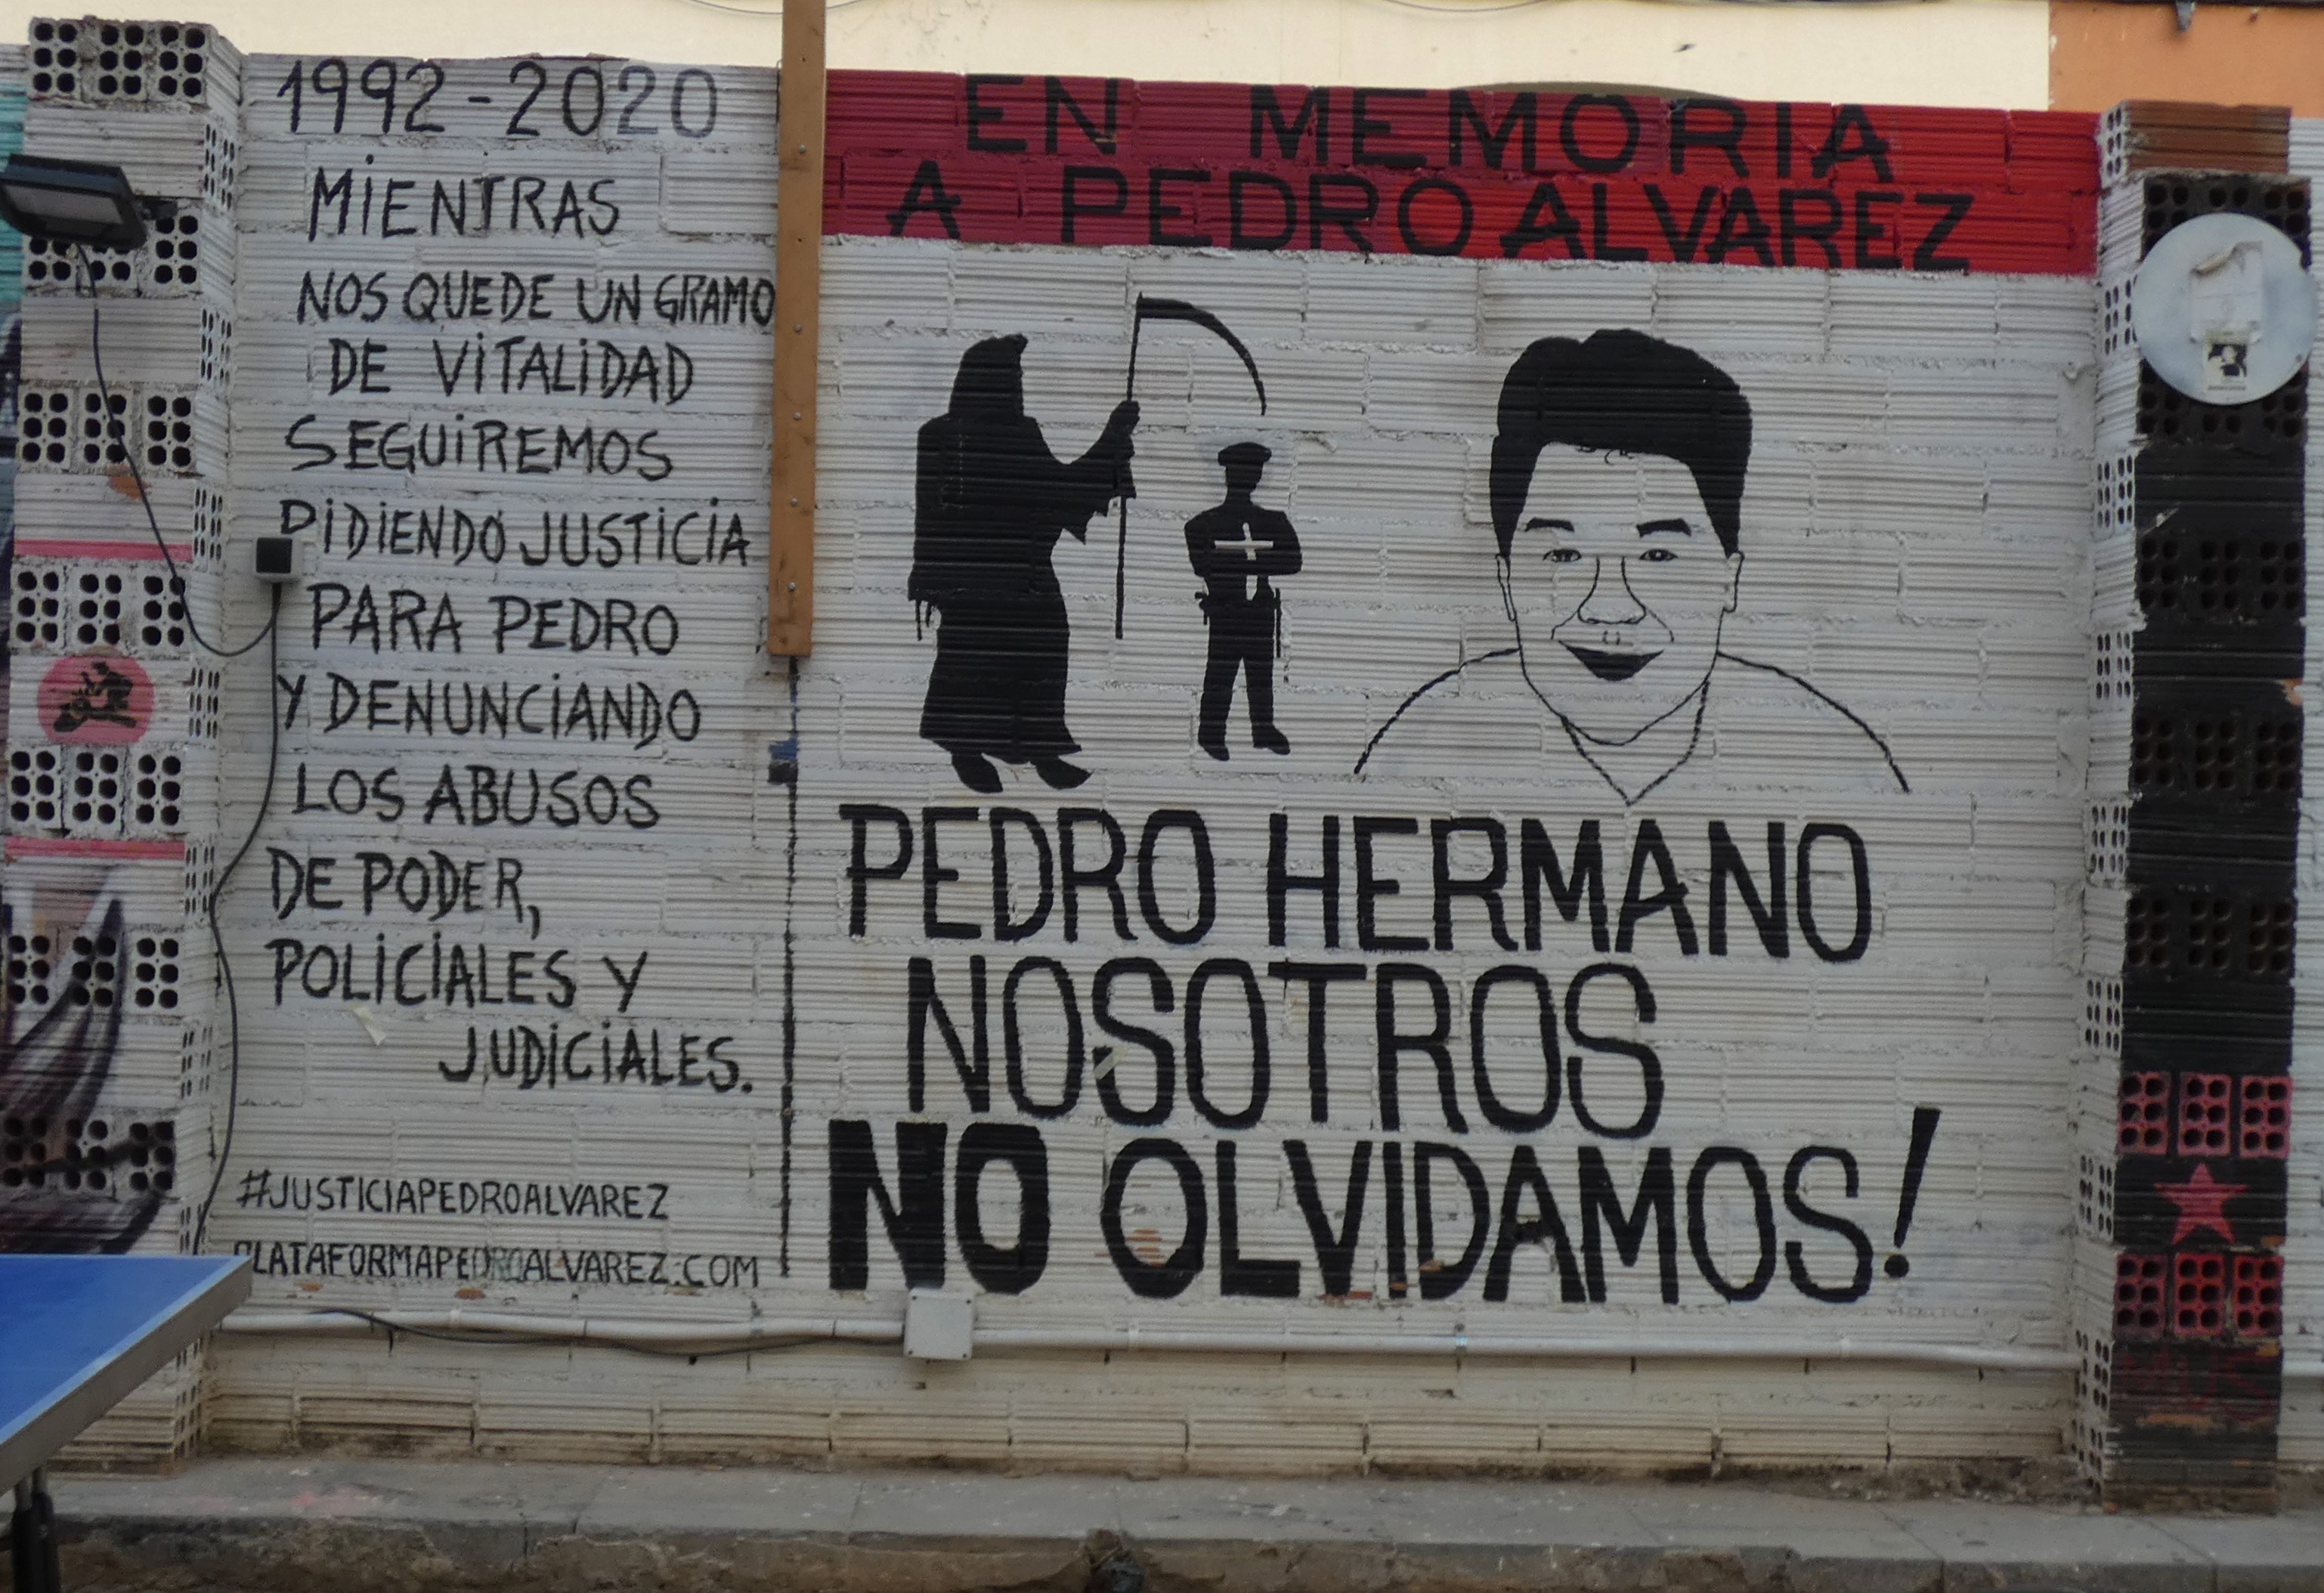 1992-2020
MIENTRAS
NOS QUEDE UN GRAMO
DE VITALIDAD
SEGUIREMOS
PIDIENDO JUSTICIA
PARA PEDRO
Y DENUNCIANDO
LOS ABUSOS
DE PODER,
POLICIALES Y
JUDICIALES.
#JUSTICIAPEDROALVAREZ
PLATAFORMAPEDROALVAREZ.COM
EN MEMORIA
A PEDRO ALVAREZ
PEDRO HERMANO
NOSOTROS
NO OLVIDAMOS!